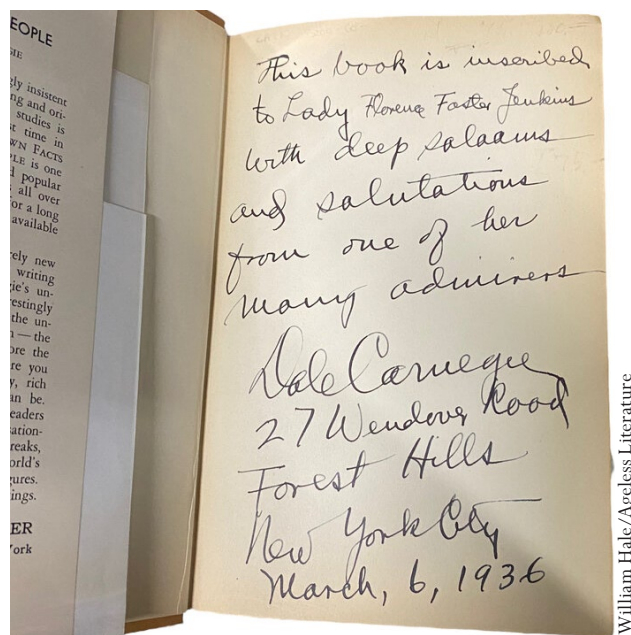 EOPLE
GIE
gly insistent
ng and ori-
studies is
st time in
WN FACTS
PLE is one
d popular
all over
or a long
available
rely new
writing
gie's un-
restingly
the un-
n — the
ore the
re you
y, rich
an be.
eaders
ation-
reaks,
orld's
gures.
ings.
ER
York
This book is inscribed
to Lady Florence Foster Jenkins
with deep salaams
and salutations
from one of her
many admirers
Dale Carnegie
27 Wendover Road
Forest Hills
New York City
March, 6, 1936
William Hale/Ageless Literature